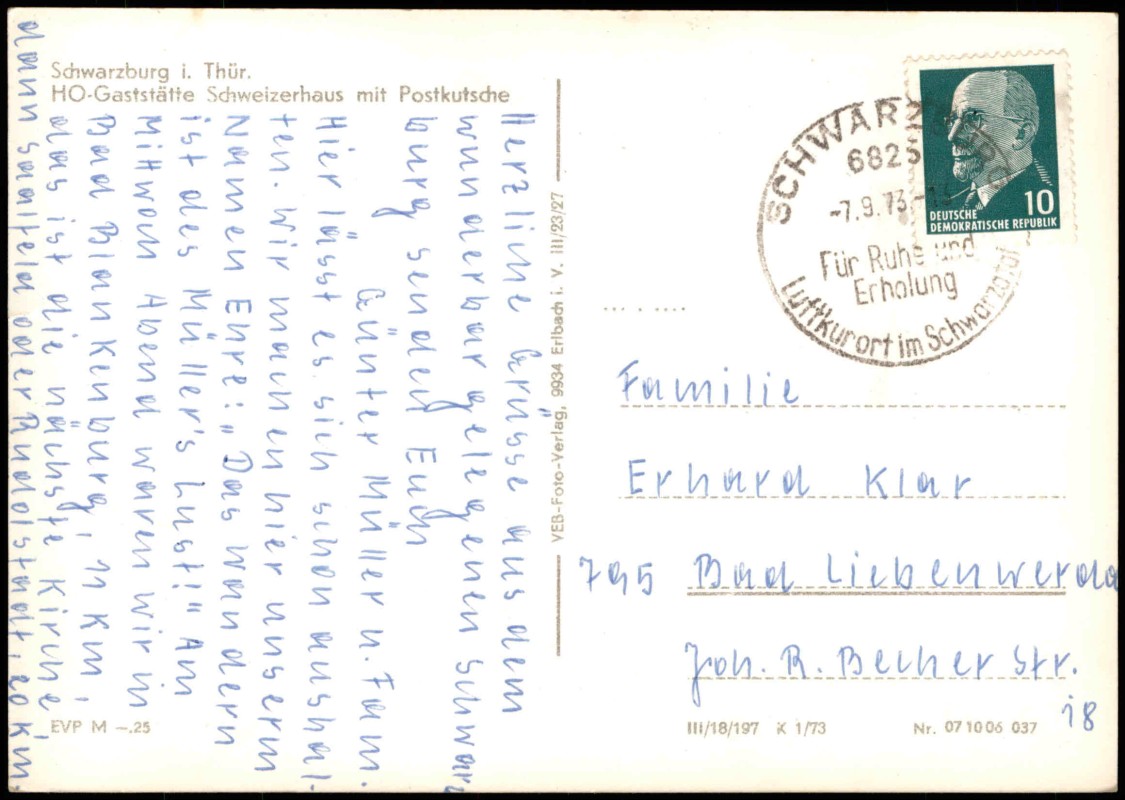 Schwarzburg i. Thür.
HO-Gaststätte Schweizerhaus mit Postkutsche
Herzliche Grüsse aus dem
wunderbar gelegenen Schwarz
burg senden Euch
Günter Müller u. Fam.
Hier lässt es sich schon aushal-
ten. Wir machen hier unserm
Namen Ehre: „Das Wandern
ist des Müller's Lust!" Am
Mittwoch Abend waren wir in
Bad Blankenburg, 11 km,
das ist die nächste Kirche,
dann Saalfeld oder Rudolstadt, 20 km.
EVP M –.25
VEB-Foto-Verlag, 9934 Erlbach i. V. III/23/27
SCHWARZBURG
6825
-7.9.73-
Für Ruhe und
Erholung
Luftkurort im Schwarzatal
10
DEUTSCHE
DEMOKRATISCHE REPUBLIK
Familie
Erhard Klar
795 Bad Liebenwerda
Joh. R. Becher Str.
18
III/18/197 K 1/73
Nr. 07 10 06 037